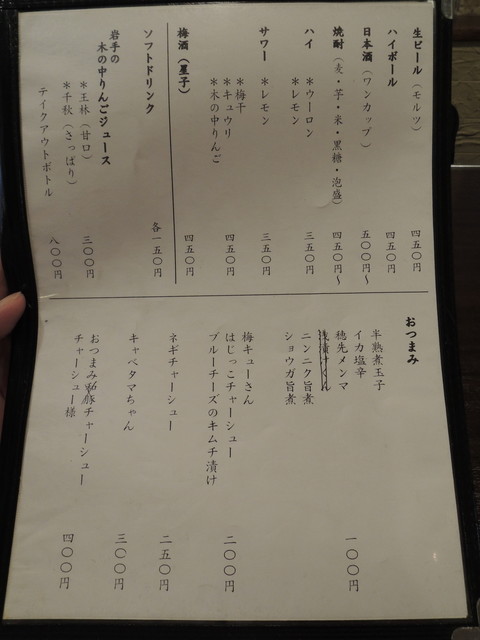 生ビール（モルツ） 四五〇円
ハイボール 四五〇円
日本酒（ワンカップ） 五〇〇円〜
焼酎（麦・芋・米・黒糖・泡盛） 四五〇円〜
ハイ
＊ウーロン
＊レモン 三五〇円
サワー
＊レモン 三五〇円
＊梅干
＊キュウリ
＊木の中りんご 四五〇円
梅酒（星子） 四五〇円
ソフトドリンク 各一五〇円
岩手の
木の中りんごジュース
＊王林（甘口）
＊千秋（さっぱり） 三〇〇円
テイクアウトボトル 八〇〇円
おつまみ
半熟煮玉子
イカ塩辛
穂先メンマ
ニンニク旨煮
ショウガ旨煮
一〇〇円
梅キューさん
はじっこチャーシュー
ブルーチーズのキムチ漬け
二〇〇円
ネギチャーシュー 二五〇円
キャベタマちゃん 三〇〇円
おつまみ豚チャーシュー
チャーシュー様 四〇〇円